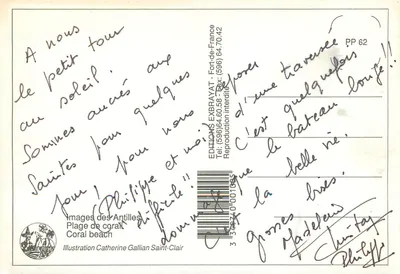 A nous
le petit tour
au soleil.
Sommes ancrés aux
Saintes pour quelques
jours pour nous reposer
(Philippe et moi) d'une traversée
difficile!! C'est quelquefois
dommage que le bateau bouge!!
C'est la belle vie.
grosses bises.
Madeleine
Christian
Philippe
PP 62
EDITIONS EXBRAYAT - Fort-de-France
Tél: (596) 64.60.58 - Fax: (596) 64.70.42
Reproduction interdite
Images des Antilles
Plage de corail
Coral beach
Illustration Catherine Gallian Saint-Clair